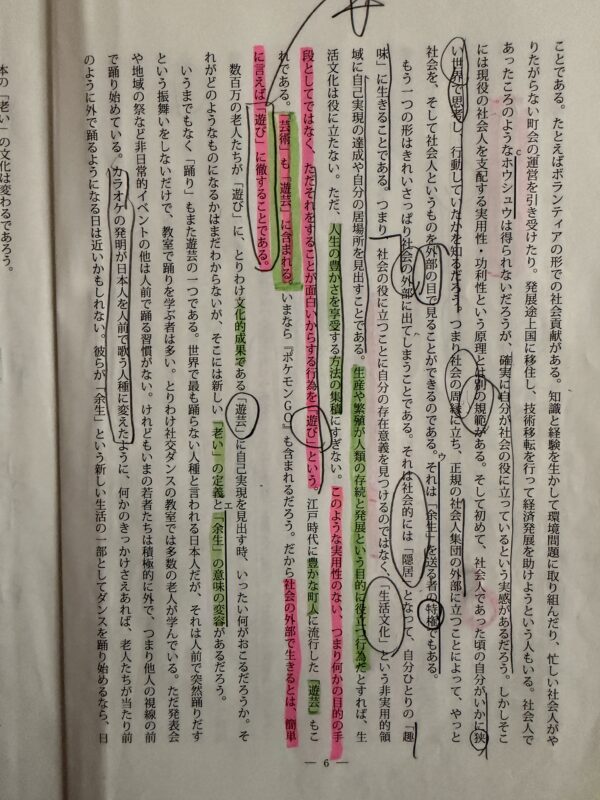 ことである。たとえばボランティアの形での社会貢献がある。知識と経験を生かして環境問題に取り組んだり、忙しい社会人がや
りたがらない町会の運営を引き受けたり。発展途上国に移住し、技術移転を行って経済発展を助けようという人もいる。社会人で
あったころのようなホウシュウは得られないだろうが、確実に自分が社会の役に立っているという実感があるだろう。しかしそこ
には現役の社会人を支配する実用性・功利性という原理と別の規範がある。そして初めて、社会人であった頃の自分がいかに狭
い世界で思考し、行動していたかを知るだろう。つまり社会の周縁に立ち、正規の社会人集団の外部に立つことによって、やっと
社会を、そして社会人というものを外部の目で見ることができるのである。それは「余生」を送る者の特権でもある。
ウ
もう一つの形はきれいさっぱり社会の外部に出てしまうことである。それは社会的には「隠居」となって、自分ひとりの「趣
味」に生きることである。つまり、社会の役に立つことに自分の存在意義を見つけるのではなく、「生活文化」という非実用的領
域に自己実現の達成や自分の居場所を見出すことである。生産や繁殖が人類の存続と発展という目的に役立つ行為だとすれば、生
活文化は役に立たない。ただ、人生の豊かさを享受する方法の集積にすぎない。このような実用性のない、つまり何かの目的の手
段としてではなく、ただそれをすることが面白いからする行為を「遊び」という。江戸時代に豊かな町人に流行した「遊芸」もこ
れである。「芸術」も「遊芸」に含まれる。いまなら『ポケモンGO』も含まれるだろう。だから社会の外部で生きるとは、簡単
に言えば「遊び」に徹することである。
数百万の老人たちが「遊び」に、とりわけ文化的成果である「遊芸」に自己実現を見出す時、いったい何がおこるだろうか。そ
れがどのようなものになるかはまだわからないが、そこには新しい「老い」の定義と「余生」の意味の変容があるだろう。
エ
いうまでもなく「踊り」もまた遊芸の一つである。世界で最も踊らない人種と言われる日本人だが、それは人前で突然踊りだす
という振舞いをしないだけで、教室で踊りを学ぶ者は多い。とりわけ社交ダンスの教室では多数の老人が学んでいる。ただ発表会
や地域の祭など非日常的イベントの他は人前で踊る習慣がない。けれどもいまの若者たちは積極的に外で、つまり他人の視線の前
で踊り始めている。カラオケの発明が日本人を人前で歌う人種に変えたように、何かのきっかけさえあれば、老人たちが当たり前
のように外で踊るようになる日は近いかもしれない。彼らが「余生」という新しい生活の一部としてダンスを踊り始めるなら、日
本の「老い」の文化は変わるであろう。
— 6 —